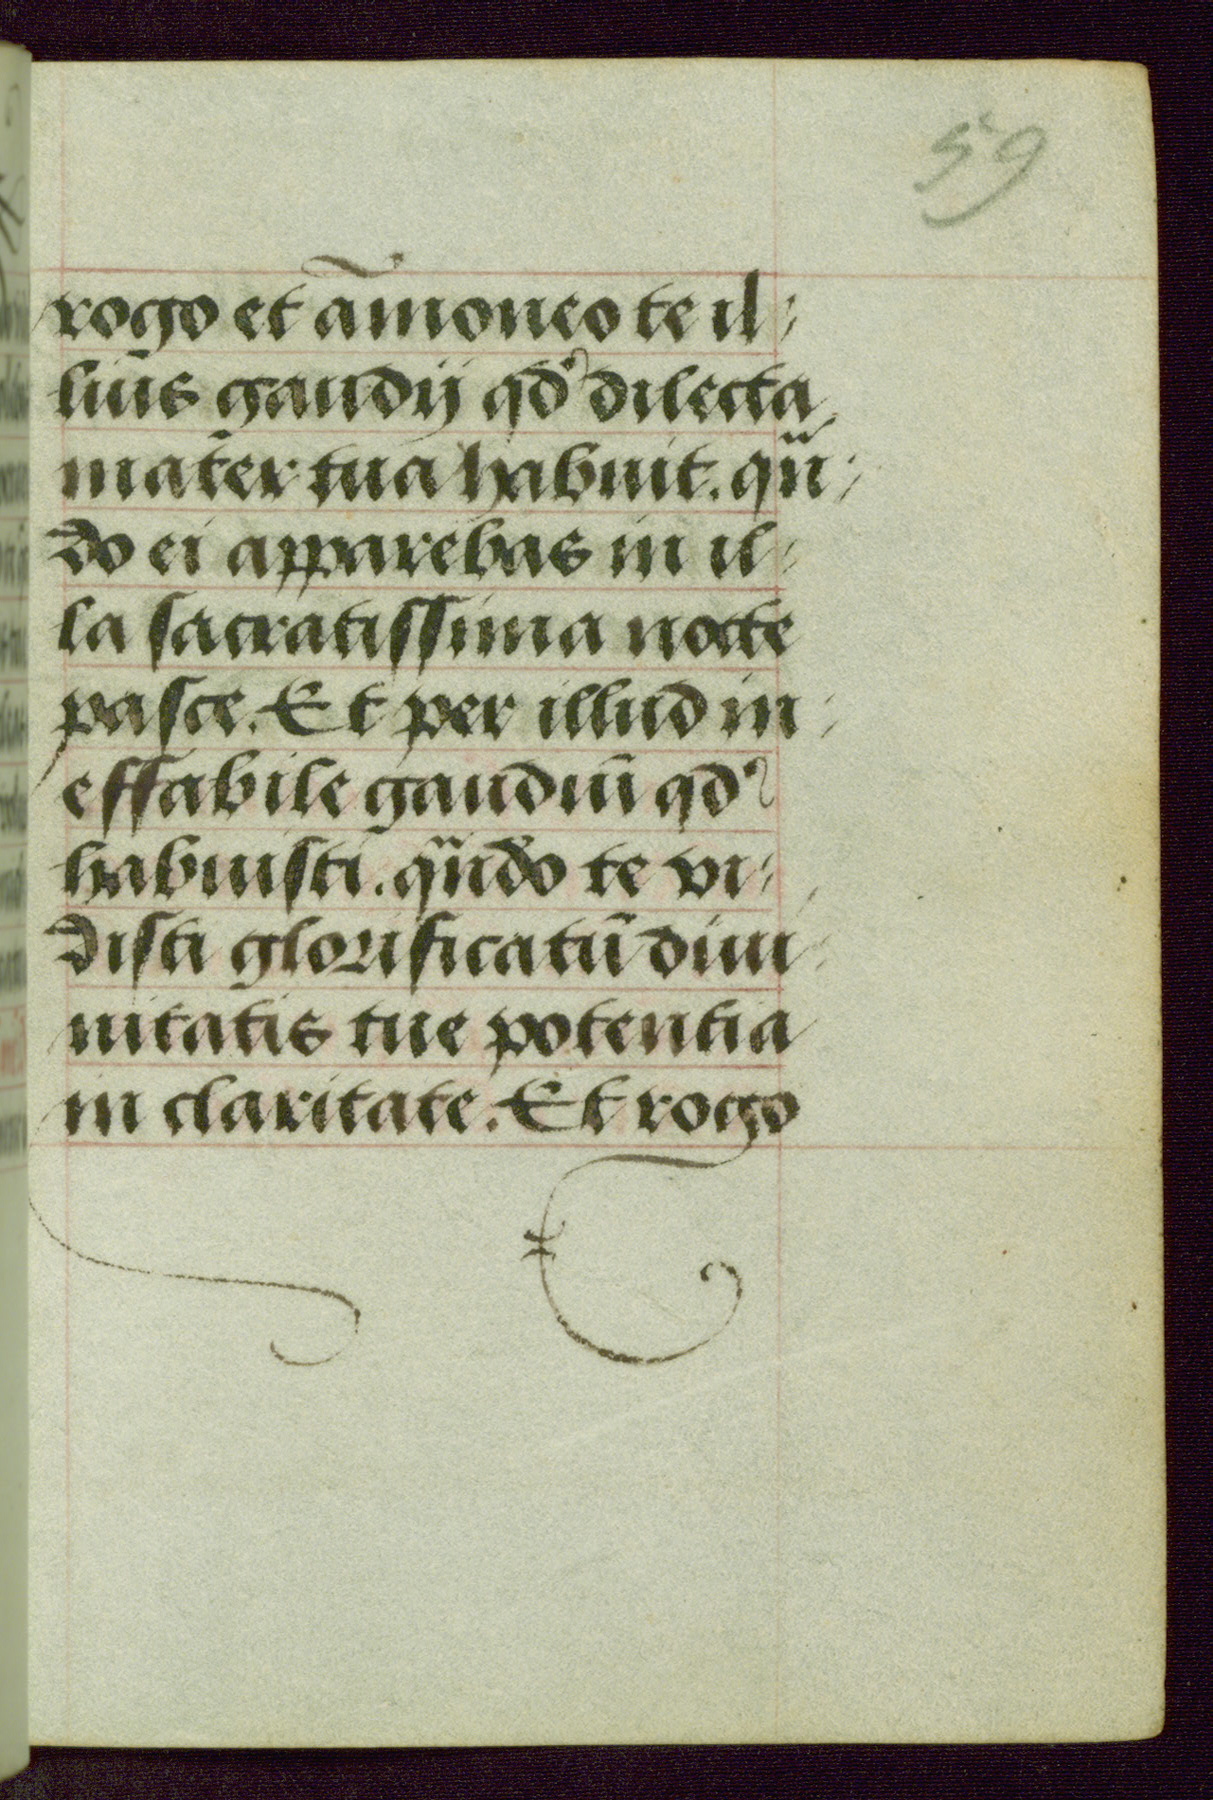 59
rogo et āmoneo te il⸗
liūs gaudij qd̛ dilecta
mater̄ tua habuit. qn̄⸗
do ei apparebas in il⸗
la sacratissima nocte
pasce. Et per illud in⸗
effabile gaudiū qd̛
habuisti. qn̄do te vi⸗
disti glorificatū diui⸗
nitatis tue potentia
in claritate. Et rogo